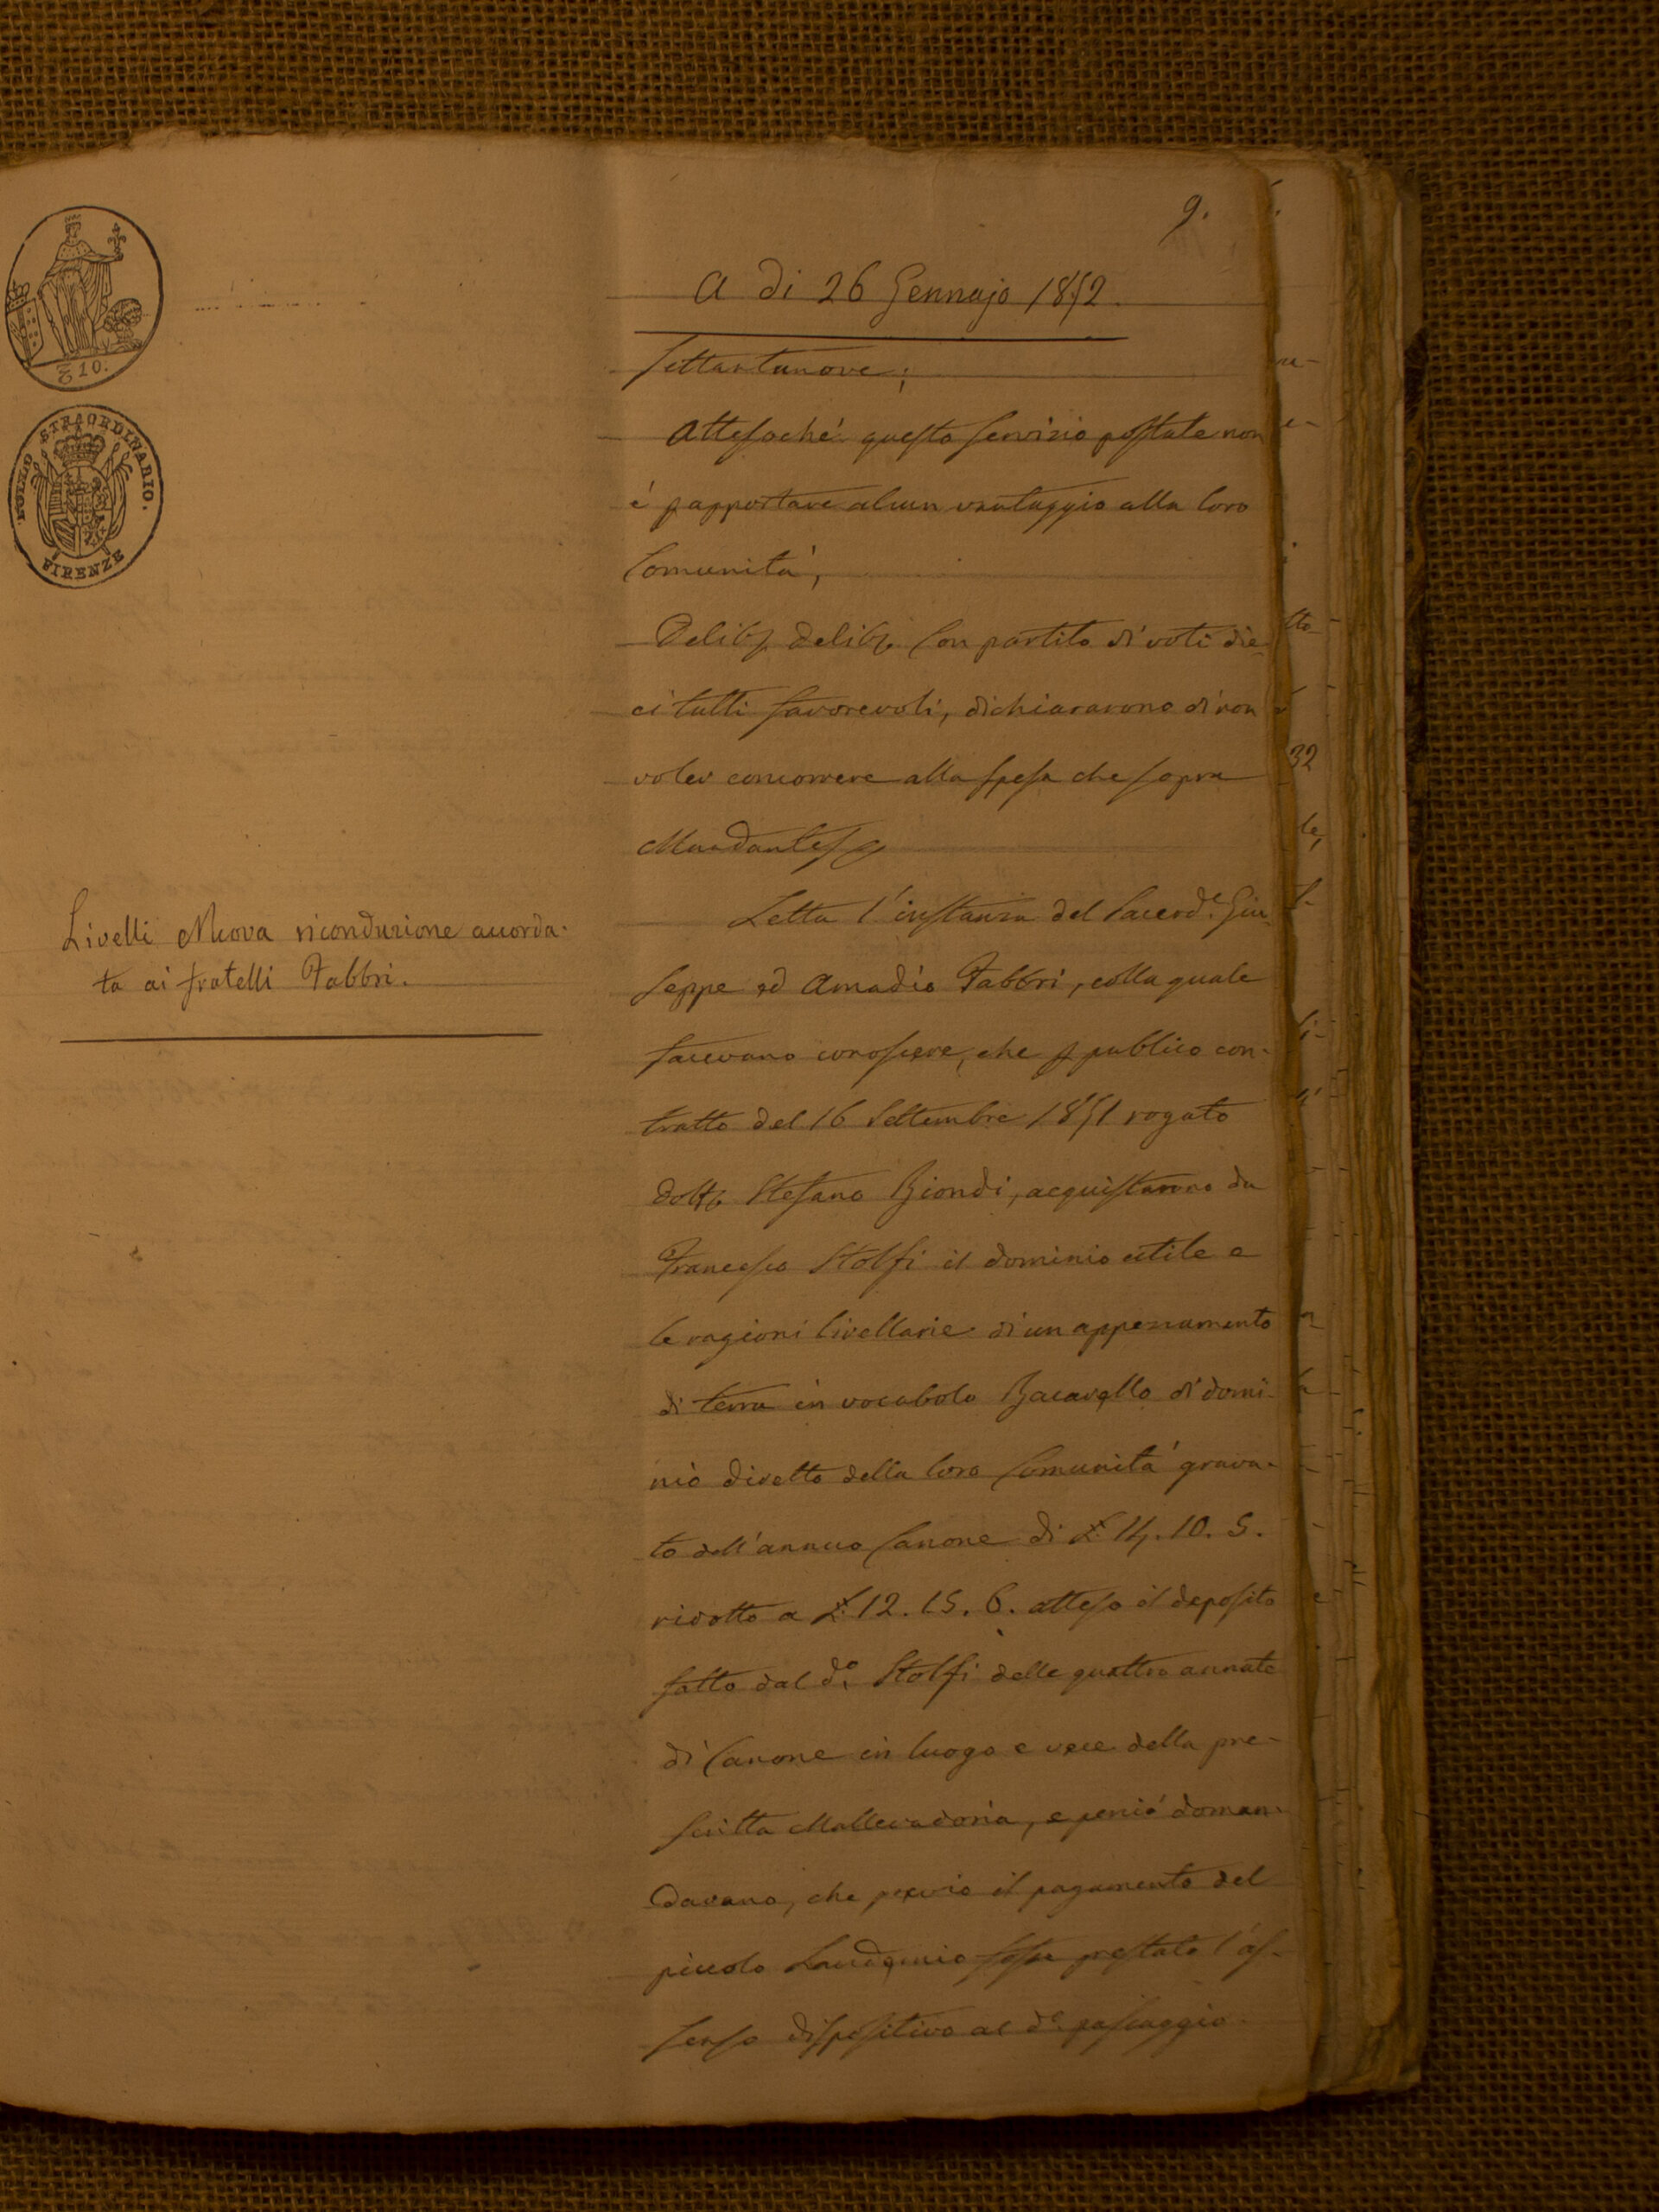 9.
A di 26 Gennajo 1852.
Settantanove;
Attesoché questo servizio postale non
é p apportare alcun vantaggio alla loro
Comunità,
Delib. delib. Con partito di voti die-
ci tutti favorevoli, dichiararono di non
voler concorrere alla spesa che sopra
Mandantes
Letta l'instanza del Sacerd.e Giu-
seppe ed Amadio Fabbri, colla quale
facevano conoscere, che p publico con-
tratto del 16 Settembre 1851 rogato
Dott. Stefano Biondi, acquistarono da
Francesco Stolfi il dominio utile e
le ragioni livellarie di un appezzamento
di terra in vocabolo Bacavello di domi-
nio diretto della loro Comunità grava-
to dell'annuo Canone di £ 14. 10. 5.
ridotto a £ 12. 15. 6. atteso il deposito
fatto dal d.o Stolfi delle quattro annate
di Canone in luogo e vece della pre-
scritta Mallevadoria, e perció doman-
davano, che previo il pagamento del
piccolo Laudemio fosse prestato l'as-
senso dispositivo al d.o passaggio
Livelli Nuova riconduzione accorda-
ta ai fratelli Fabbri.
10.
BOLLO STRAORDINARIO.
FIRENZE